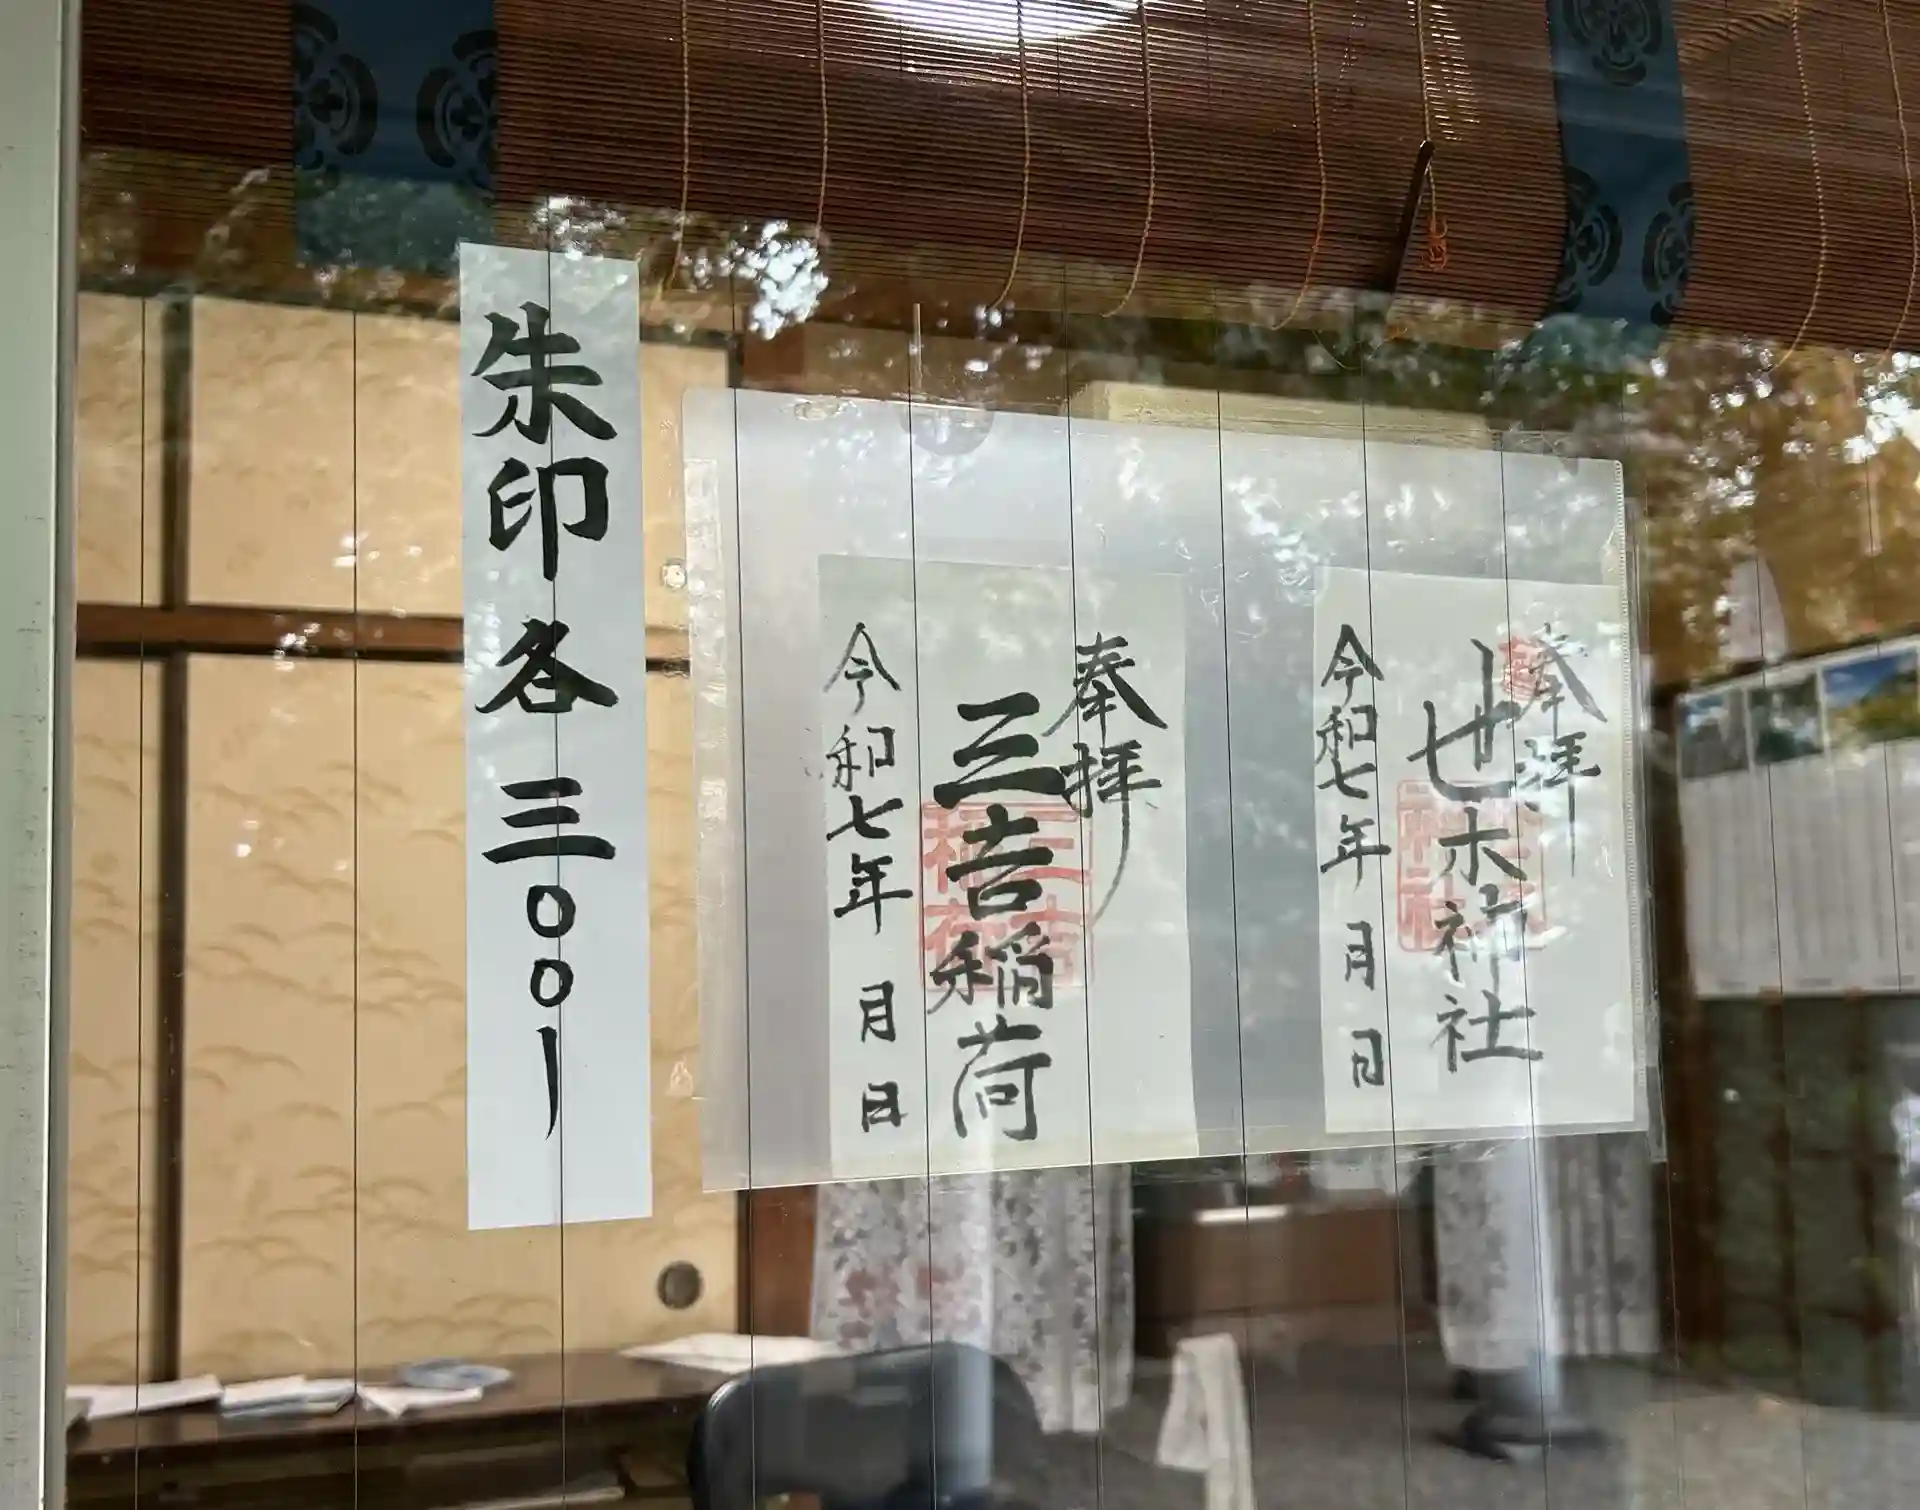 奉拝
世木神社
令和七年 月 日
奉拝
三吉稲荷
三吉
稲荷
令和七年 月 日
朱印各三〇〇ー